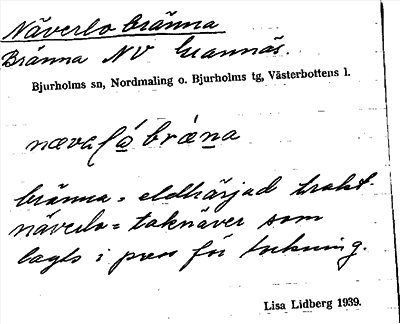 Näverlobränna
Bränna NV Grannäs.
Bjurholms sn, Nordmaling o. Bjurholms tg, Västerbottens l.
bränna = eldhärjad trakt.
näverlo = taknäver som
lagts i press för torkning.
Lisa Lidberg 1939.